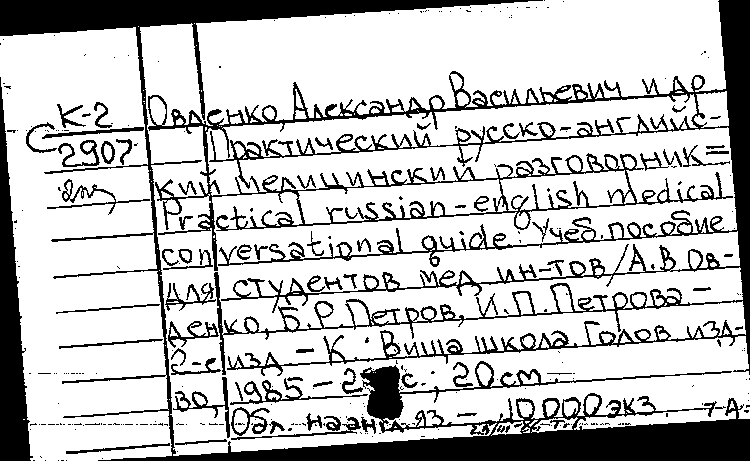 К-2 Овденко, Александр Васильевич и др
2907 Практический русско-английс-
кий медицинский разговорник=
Practical russian-english medical
conversational guide: Учеб. пособие
для студентов мед ин-тов/А.В Ов-
денко, Б.Р. Петров, И.П. Петрова-
2-е изд - К.: Вища школа. Голов изд-
во, 1985 - с.; 20 см.
Обл. на англ. яз. - 10000 экз. 7-А=